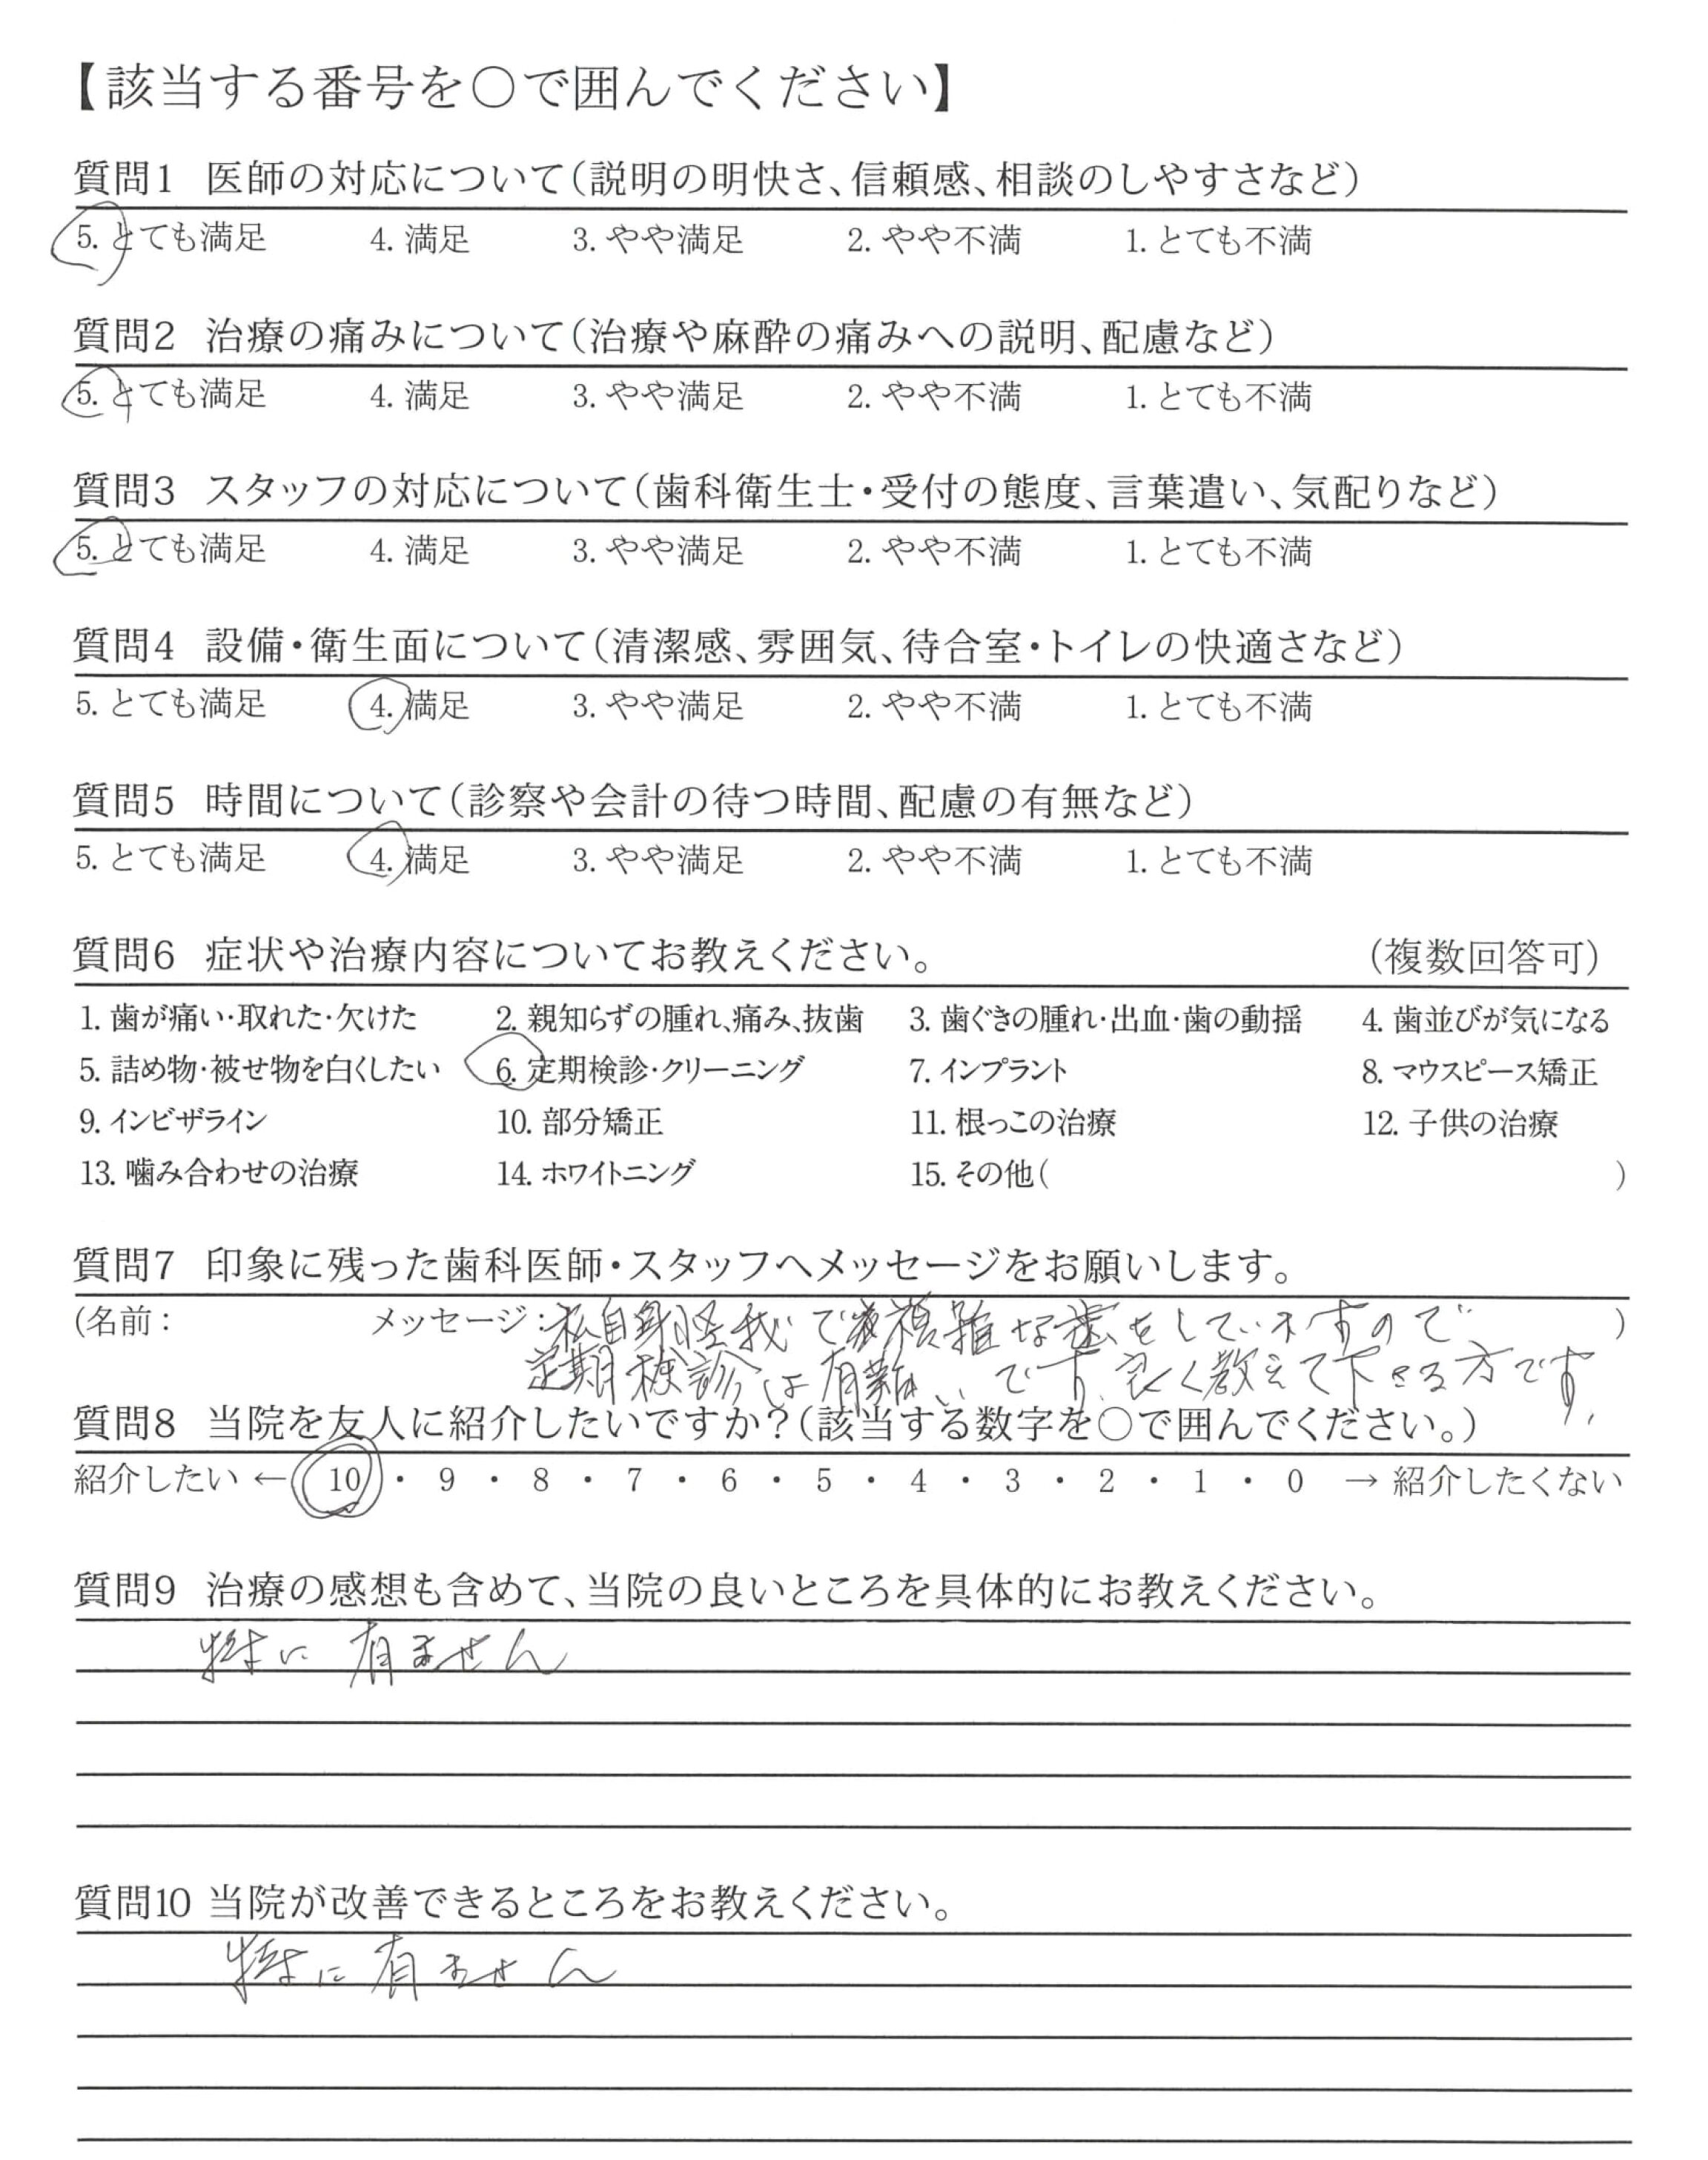 【該当する番号を○で囲んでください】
質問1 医師の対応について(説明の明快さ、信頼感、相談のしやすさなど)
5. とても満足 4. 満足 3. やや満足 2. やや不満 1. とても不満
質問2 治療の痛みについて(治療や麻酔の痛みへの説明、配慮など)
5. とても満足 4. 満足 3. やや満足 2. やや不満 1. とても不満
質問3 スタッフの対応について(歯科衛生士・受付の態度、言葉遣い、気配りなど)
5. とても満足 4. 満足 3. やや満足 2. やや不満 1. とても不満
質問4 設備・衛生面について(清潔感、雰囲気、待合室・トイレの快適さなど)
5. とても満足 4. 満足 3. やや満足 2. やや不満 1. とても不満
質問5 時間について(診察や会計の待つ時間、配慮の有無など)
5. とても満足 4. 満足 3. やや満足 2. やや不満 1. とても不満
質問6 症状や治療内容についてお教えください。 (複数回答可)
1. 歯が痛い・取れた・欠けた 2. 親知らずの腫れ、痛み、抜歯 3. 歯ぐきの腫れ・出血・歯の動揺 4. 歯並びが気になる
5. 詰め物・被せ物を白くしたい 6. 定期検診・クリーニング 7. インプラント 8. マウスピース矯正
9. インビザライン 10. 部分矯正 11. 根っこの治療 12. 子供の治療
13. 噛み合わせの治療 14. ホワイトニング 15. その他( )
質問7 印象に残った歯科医師・スタッフへメッセージをお願いします。
(名前: メッセージ:私自身怪我で複雑な歯をしていますので )
定期検診は有難いです、良く教えて下さる方です。
質問8 当院を友人に紹介したいですか?(該当する数字を○で囲んでください。)
紹介したい ← 10 ・ 9 ・ 8 ・ 7 ・ 6 ・ 5 ・ 4 ・ 3 ・ 2 ・ 1 ・ 0 → 紹介したくない
質問9 治療の感想も含めて、当院の良いところを具体的にお教えください。
特に有ません
質問10 当院が改善できるところをお教えください。
特に有ません